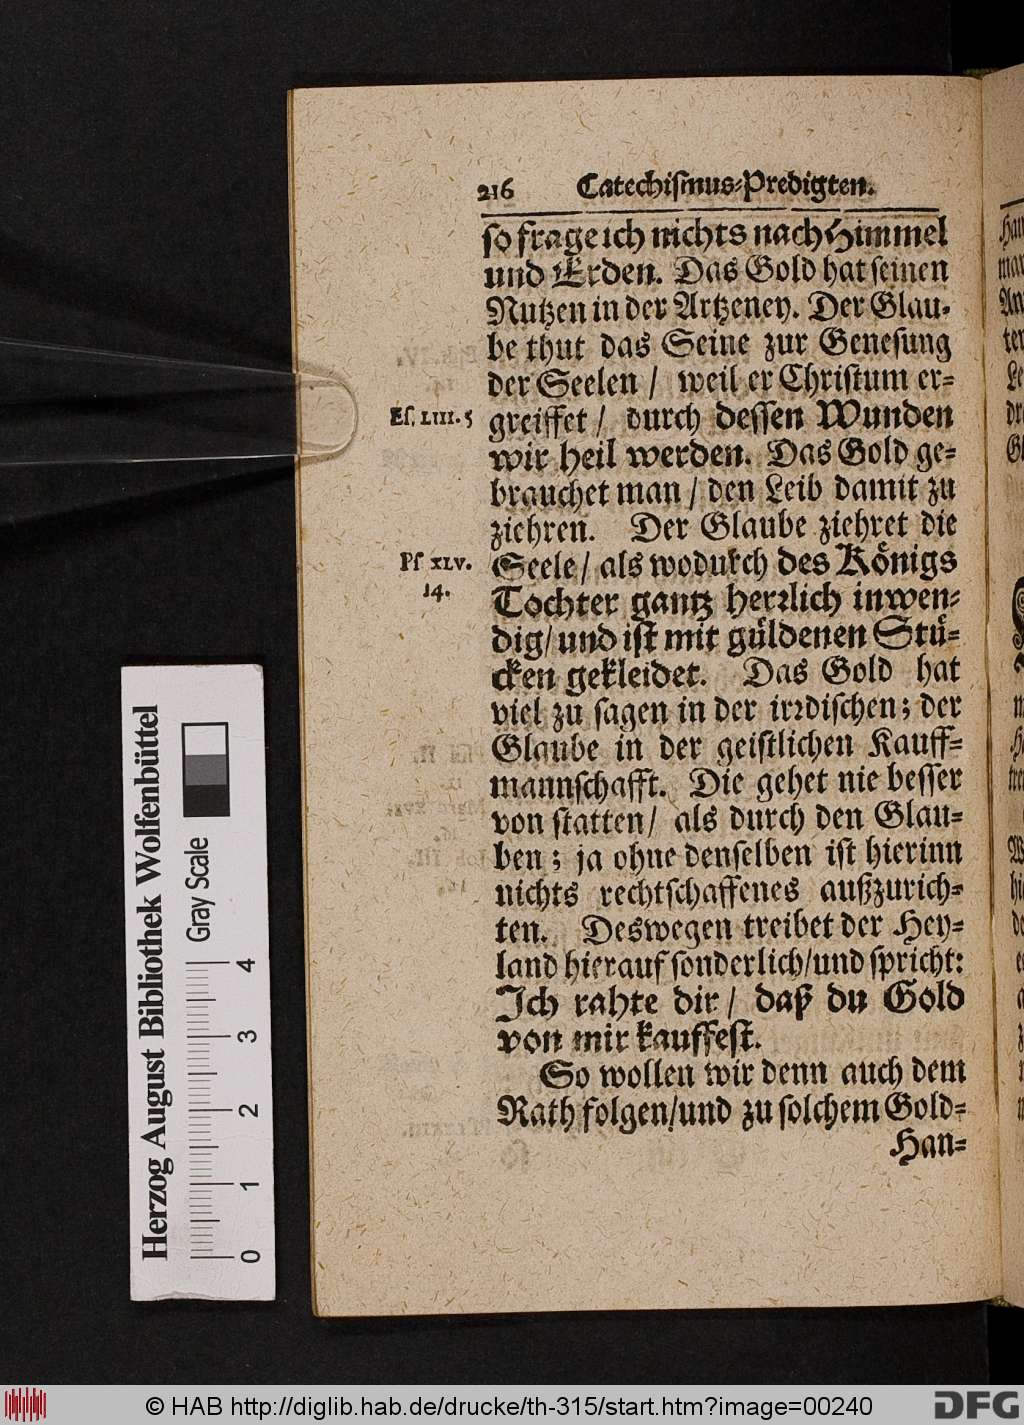 216 Catechiſmus-Predigten.
ſo frage ich nichts nach Himmel
und Erden. Das Gold hat ſeinen
Nutzen in der Artzeney. Der Glau-
be thut das Seine zur Geneſung
der Seelen / weil er Chriſtum er-
Eſ. LIII. 5
greiffet / durch deſſen Wunden
wir heil werden. Das Gold ge-
brauchet man / den Leib damit zu
ziehren. Der Glaube ziehret die
Pſ XLV.
14.
Seele / als wodurch des Königs
Tochter gantz herꝛlich inwen-
dig / und iſt mit güldenen Stü-
cken gekleidet. Das Gold hat
viel zu ſagen in der irꝛdiſchen; der
Glaube in der geiſtlichen Kauff-
mannſchafft. Die gehet nie beſſer
von ſtatten / als durch den Glau-
ben; ja ohne denſelben iſt hierinn
nichts rechtſchaffenes außzurich-
ten. Deswegen treibet der Hey-
land hierauf ſonderlich / und ſpricht:
Ich rahte dir / daß du Gold
von mir kauffeſt.
So wollen wir denn auch dem
Rath folgen / und zu ſolchem Gold-
Han-
Herzog August Bibliothek Wolfenbüttel
Gray Scale
0 1 2 3 4
© HAB http://diglib.hab.de/drucke/th-315/start.htm?image=00240
DFG